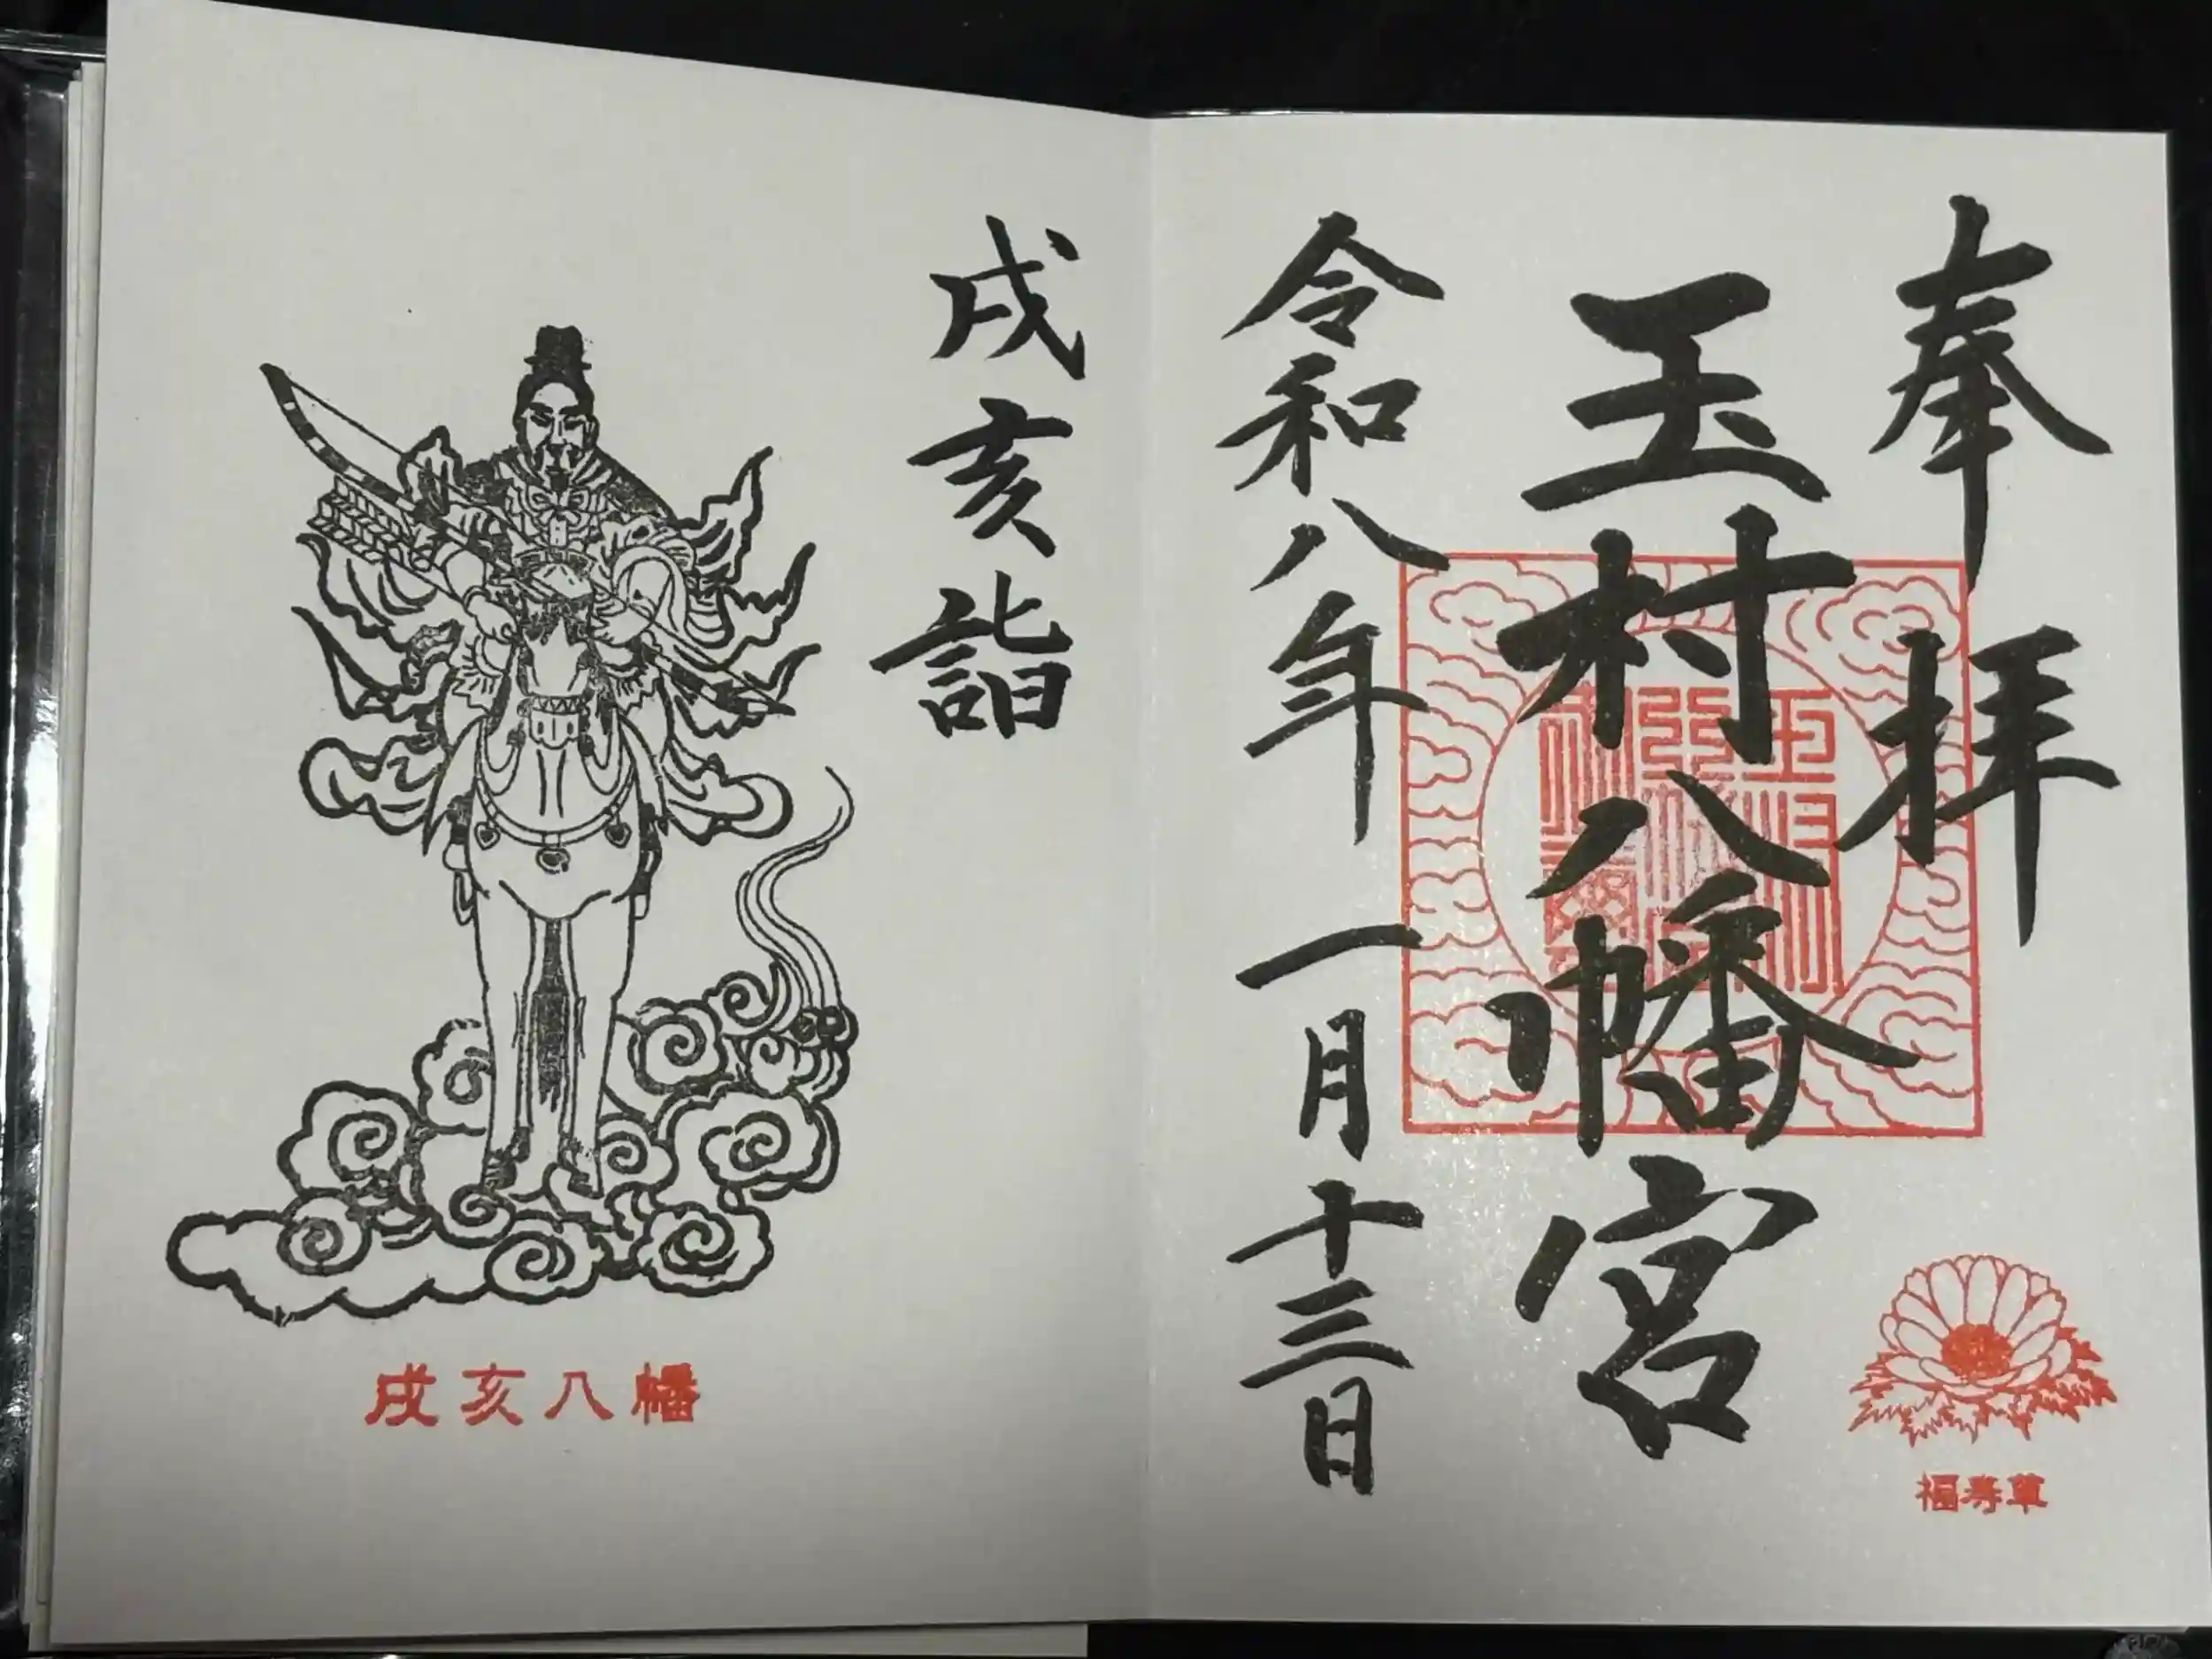 奉拝
玉村八幡宮
令和八年一月十三日
福寿草
戌亥詣
戌亥八幡